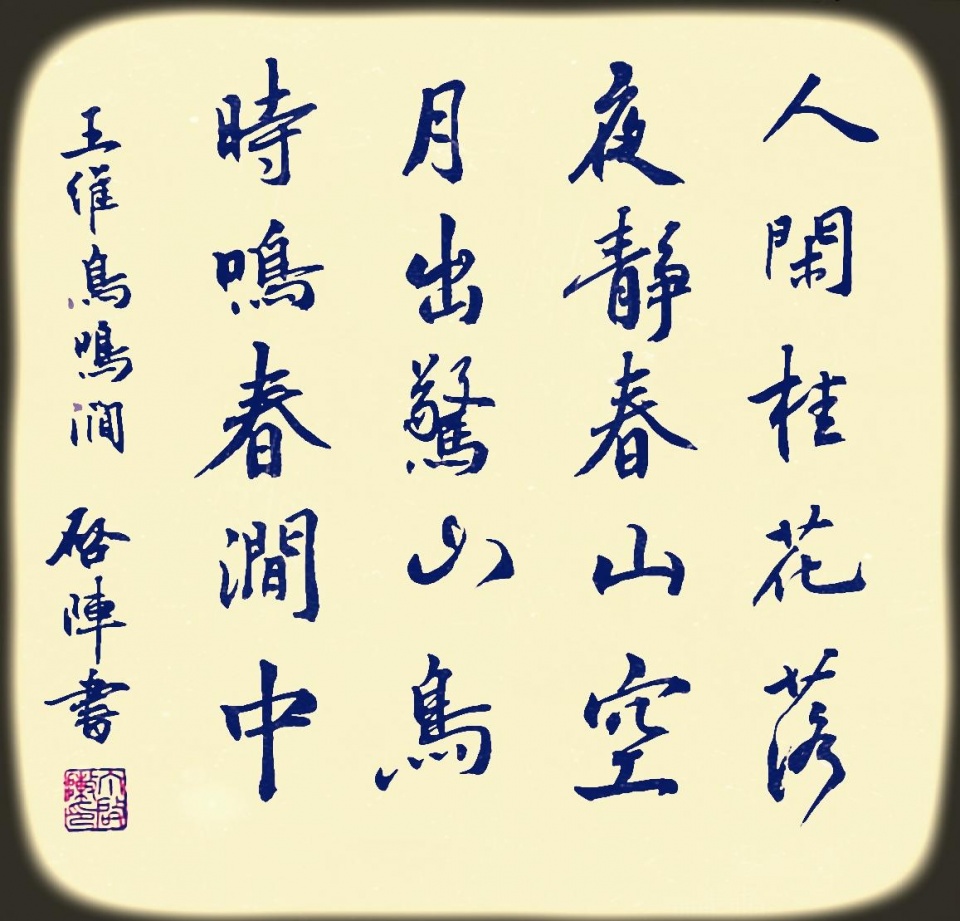 人閑桂花落
夜靜春山空
月出驚山鳥
時鳴春澗中
王維鳥鳴澗 启陣書